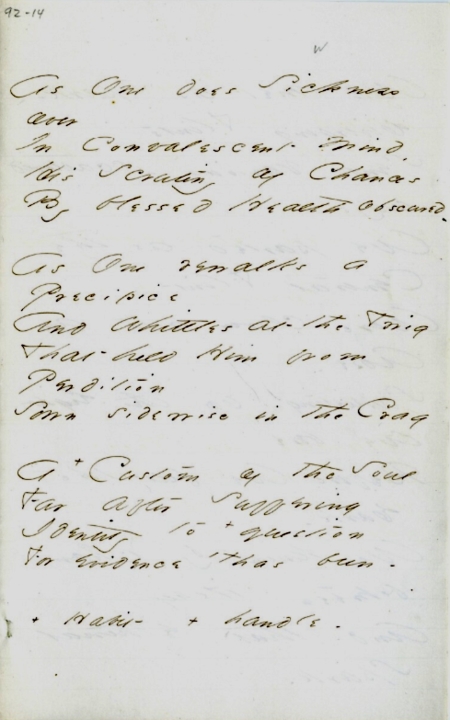 92-14
w
As One does Sickness
over
In Convalescent Mind,
His Scrutiny of Chances
By blessed Health obscured.
As One rewalks a
Precipice
And Whittles at the Twig
That held Him from
Perdition
Sown sidewise in the Crag
A + Custom of the Soul
Far after Suffering
Identity to + question
For evidence 't has been.
+ Habit + handle.